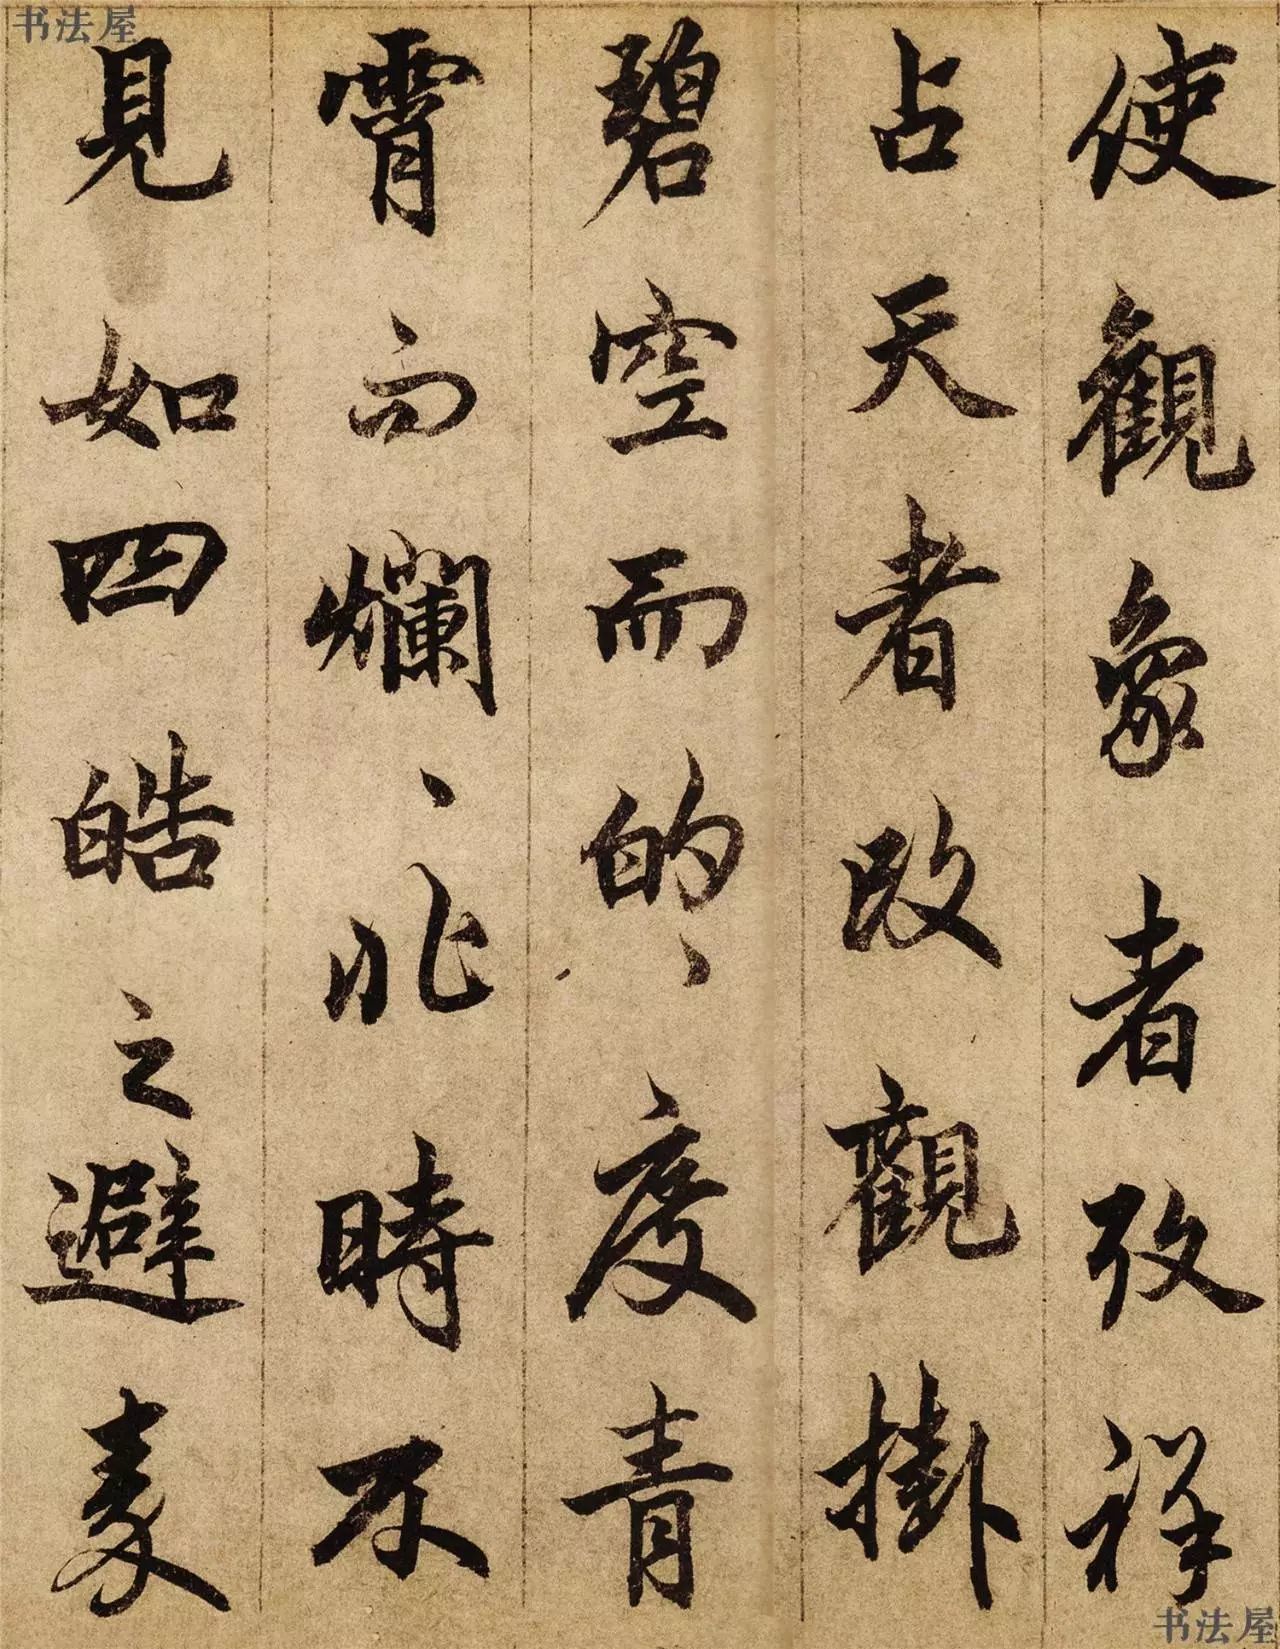 书法屋
使觀象者攷祥
占天者改觀掛
碧空而的、度青
霄而爛、非時不
見如四皓之避
书法屋